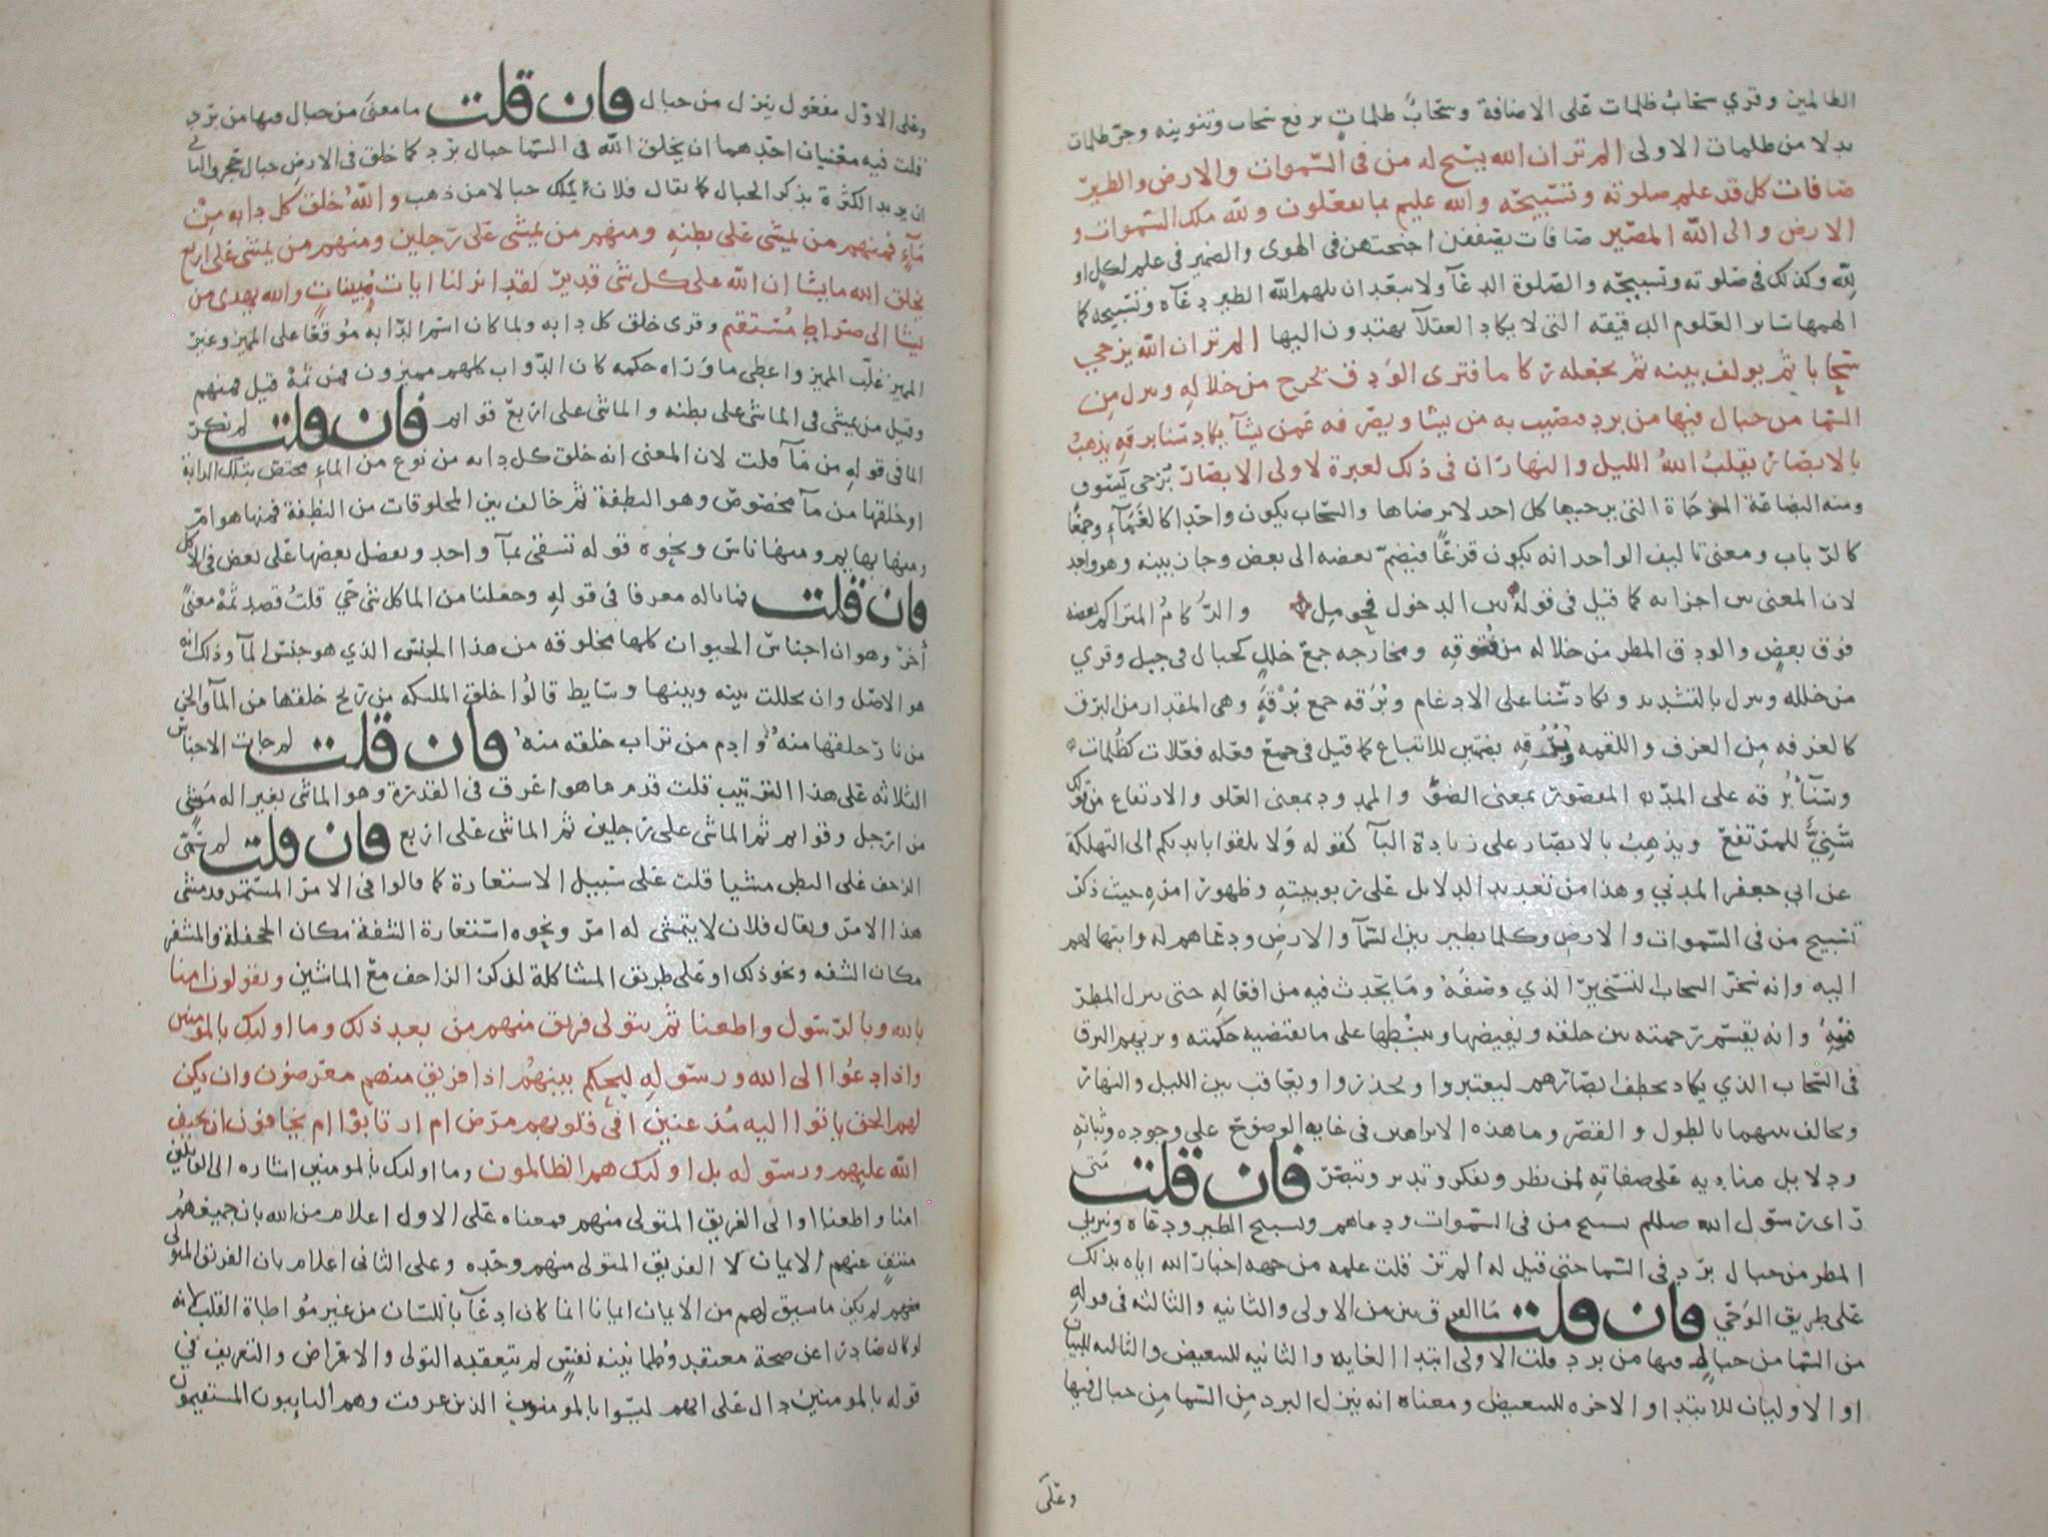 الظالمين وقري سحاب ظلمات على الاضافة وسحابٌ ظلماتٍ برفع سحاب وتنوينه وجر ظلمات
بدلا من ظلمات الاولى الم تر ان الله يسبح له من فى السموات والارض والطير
صافات كل قد علم صلوته وتسبيحه والله عليم بما يفعلون ولله ملك السموات و
الارض والى الله المصير صافات يصففن اجنحتهن فى الهوى والضمير فى علم لكل او
لله وكذلك فى صلوته وتسبيحه والصلوة الدعآ ولا يبعد ان يلهم الله الطير دعآه وتسبيحه كما
الهمها سائر العلوم الدقيقه التى لا يكاد العقلآ يهتدون اليها الم تر ان الله يزجي
سحابا ثم يولف بينه ثم يجعله ركاما فترى الودق يخرج من خلاله وينزل من
السما من جبال فيها من برد فيصيب به من يشا ويصرفه عمن يشآ يكاد سنا برقه يذهب
بالابصار يقلب الله الليل والنهار ان فى ذلك لعبرة لاولى الابصار يزجى يسوق
ومنه البضاعة المزجاة التى يزجيها كل احد لا يرضاها والسحاب يكون واحدا كالغمآء وجمعًا
كالرباب ومعنى تاليف الواحد انه يكون قزعًا فيضم بعضه الى بعض وجاز بينه وهو واحد
لان المعنى بين اجزائه كما قيل فى قوله بين الدخول فحومل والرُكامُ المتراكم بعضه
فوق بعض والودق المطر من خلاله من فتوقه ومخارجه جمع خللٍ كجبال فى جبل وقري
من خلله وينزل بالتشديد ويكاد سّنا على الادغام وبُرَقه جمع بُرْقةٍ وهى المقدار من البرق
كالغرفه من الغرف واللقمه وبُرُقه بضمتين للاتباع كما قيل فى جمع فعله فعلات كظلمات
وسنآبُرقه على المد المقصور بمعنى الضوْ والممدود بمعنى العلو والارتفاع من قولك
سَنِيٌّ للمرتفع ويذهبُ بالابصار على زيادة البآ كقوله ولا تلقوا بايديكم الى التهلكة
عن ابي جعفر المدني وهذا من تعديد الدلايل على ربوبيته وظهور امره حيث ذكر
تسبيح من فى السموات والارض وكل ما يطير بين السمآ والارض ودعاهم له وابتهالهم
اليه وانه سخر السحاب التسخير الذي وصفه وما يحدث فيه من افعاله حتى ينزل المطر
منه وانه يقسم رحمته بين خلقه ويقبضها ويبسطها على ما تقتضيه حكمته ويريهم البرق
فى السحاب الذي يكاد يخطف ابصارهم ليعتبروا ويحذروا ويعاقب بين الليل والنهار
ويخالف بينهما بالطول والقصر وما هذه الا براهين فى غاية الوضوح على وجوده وثباته
ودلايل مناديه على صفاته لمن نظر وتفكر وتدبر وتبصر فان قلت متى
راى رسول الله صللم تسبيح من فى السموات ودعاهم وتسبيح الطير ودعاه وتنزيل
المطر من جبال برد فى السما حتى قيل له الم تر قلت علمه من جهه اخبار الله اياه بذلك
على طريق الوحي فان قلت ما الفرق بين من الاولى والثانيه والثالثه فى قوله
من السما من جبال فيها من برد قلت الاولى ابتدا الغايه والثانيه للتبعيض والثالثه للبيان
او الاوليان للابتدا والاخره للتبعيض ومعناه انه ينزل البرد من السما من جبال فيها
وعلى
وعلى الاول مفعول ينزل من جبال فان قلت ما معنى من جبال فيها من برد
قلت فيه معنيان احدهما ان يخلق الله فى السما جبال برد كما خلق فى الارض جبال حجر والثانى
ان يريد الكثرة بذكر الجبال كما يقال فلان يملك جبالا من ذهب والله خلق كل دابه من
مآءٍ فمنهم من يمشى على بطنه ومنهم من يمشى على رجلين ومنهم من يمشى على اربع
يخلق الله ما يشا ان الله على كل شى قدير لقد انزلنا ايات مبينات والله يهدى من
يشا الى صراط مستقيم وقرى خالق كل دابه ولما كان اسم الدابه موقعًا على المميز وغير
المميز غلب المميز واعطى ما وراه حكمه كان الدواب كلهم مميزون فمن ثمهْ قيل فمنهم
وقيل من يمشى فى الماشى على بطنه والماشى على اربع قوايم فان قلت لم نكر
الما فى قوله من مآ قلت لان المعنى انه خلق كل دابه من نوع من الماء مختص بتلك الدابة
او خلقها من مآ مخصوص وهو النطفة ثم خالف بين المخلوقات من النطفة فمنها هوام
ومنها بهايم ومنها ناس ونحوه قوله تسقى بمآ واحد ونفضل بعضها على بعض فى الاكل
فان قلت فما باله معرفا فى قوله وجعلنا من الما كل شى حي قلتُ قصد ثمهْ معنىً
اخر وهو ان اجناس الحيوان كلها مخلوقه من هذا الجنس الذي هو جنس المآ وذلك انه
هو الاصل وان تخللت بينه وبينها وسايط قالُوا خلق الملئكه من ريح خلقها من المآ والجن
من نار خلقها منه وادم من تراب خلقه منه فان قلت لم جات الاجناس
الثلاثه على هذا الترتيب قلت قدم ما هو اعرق فى القدرة وهو الماشى بغير اله مشي
من ارجل وقوايم ثم الماشى على رجلين ثم الماشى على اربع فان قلت لم سمى
الزحف على البطن مشيا قلت على سبيل الاستعارة كما قالوا فى الامر المستمر قد مشى
هذا الامر ويقال فلان لا يتمشى له امر ونحوه استعارة الشفة مكان الجحفلة والمشفر
مكان الشفه ونحو ذلك او على طريق المشاكلة لذكر الزاحف مع الماشين ويقولون امنا
بالله وبالرسول واطعنا ثم يتولى فريق منهم من بعد ذلك وما اوليك بالمومنين
واذا دعُوا الى الله ورسوله ليحكم بينهم اذا فريق منهم معرضون وان يكن
لهم الحق ياتوا اليه مُذعنين افى قلوبهم مرض ام ارتابوا ام يخافون ان يحيف
الله عليهم ورسوله بل اوليك هم الظالمون وما اوليك بالمومنين اشاره الى القايلين
امنا واطعنا او الى الفريق المتولى منهم فمعناه على الاول اعلام من الله بان جميعهم
منتفٍ عنهم الايمان لا الفريق المتولى منهم وحده وعلى الثانى اعلام بان الفريق المتولى
منهم لم يكن ما سبق لهم من الايمان ايمانا انما كان ادعآ باللسان من غير مواطاة القلب لانه
لو كان صادرا عن صحة معتقد وطمانينه نفس لم يتعقبه التولى والاعراض والتعريف فى
قوله بالمومنين دال على انهم ليسوا بالمومنين الذين عرفت وهم الثابتون المستقيمون